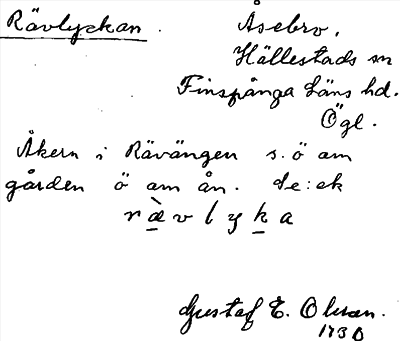 Rävlyckan.
Åsebro,
Hällestads sn
Finspånga läns hd.
Ögl.
Åkern i Rävängen s.ö om
gården ö om ån. de:ek
r æ̀ v l y k a
Gustaf E. Olsson.
1930